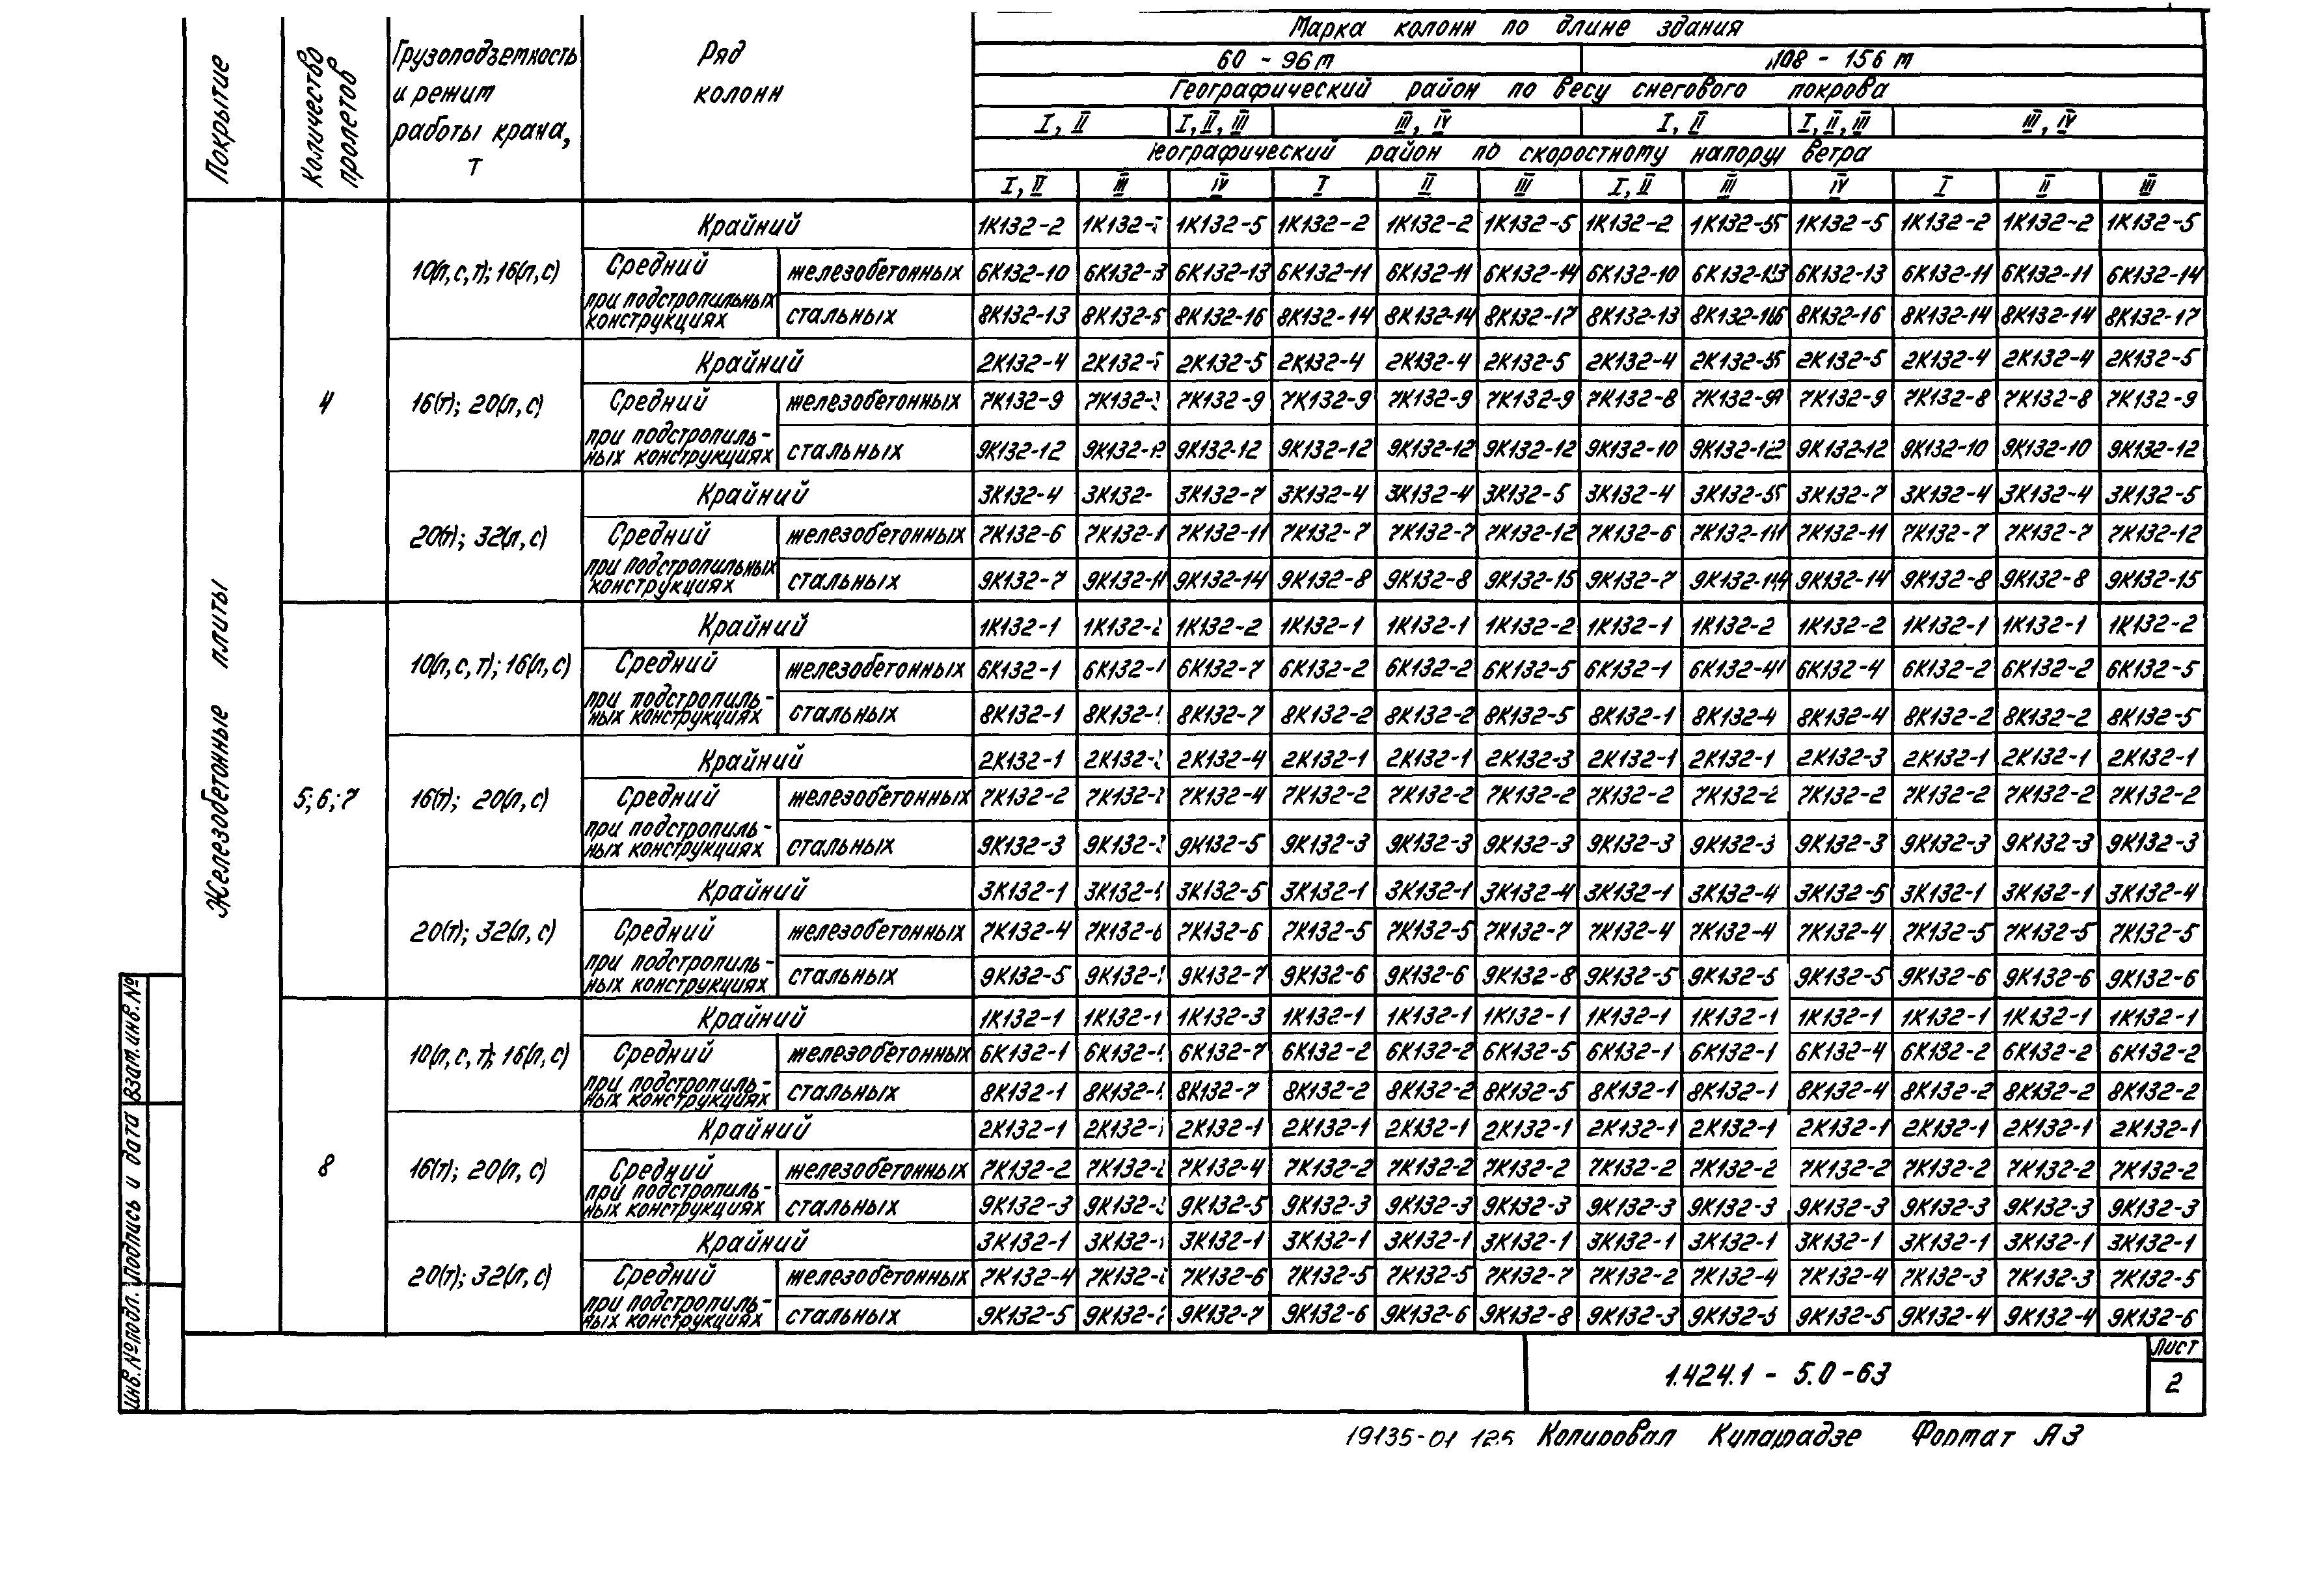 Марка колонн по длине здания
60 - 96 м 108 - 156 м
Покрытие Количество пролетов Грузоподъемность и режим работы крана, т Ряд колонн
Географический район по весу снегового покрова
I, II I, II, III III, IV I, II I, II, III III, IV
географический район по скоростному напору ветра
I, II III IV I II III I, II III IV I II III
Железобетонные плиты
4
10(л,с,т); 16(л,с)
Крайний 1К132-2 1К132- 1К132-5 1К132-2 1К132-2 1К132-5 1К132-2 1К132-5 1К132-5 1К132-2 1К132-2 1К132-5
Средний при подстропильных конструкциях
железобетонных 6К132-10 6К132- 6К132-13 6К132-11 6К132-11 6К132-14 6К132-10 6К132-13 6К132-13 6К132-11 6К132-11 6К132-14
стальных 8К132-13 8К132- 8К132-16 8К132-14 8К132-14 8К132-17 8К132-13 8К132-16 8К132-16 8К132-14 8К132-14 8К132-17
16(т); 20(л,с)
Крайний 2К132-4 2К132- 2К132-5 2К132-4 2К132-4 2К132-5 2К132-4 2К132-5 2К132-5 2К132-4 2К132-4 2К132-5
Средний при подстропиль-
ных конструкциях
железобетонных 7К132-9 7К132- 7К132-9 7К132-9 7К132-9 7К132-9 7К132-8 7К132-9 7К132-9 7К132-8 7К132-8 7К132-9
стальных 9К132-12 9К132-12 9К132-12 9К132-12 9К132-12 9К132-12 9К132-10 9К132-12 9К132-12 9К132-10 9К132-10 9К132-12
20(т); 32(л,с)
Крайний 3К132-4 3К132- 3К132-7 3К132-4 3К132-4 3К132-5 3К132-4 3К132-5 3К132-7 3К132-4 3К132-4 3К132-5
Средний при подстропильных конструкциях
железобетонных 7К132-6 7К132-1 7К132-11 7К132-7 7К132-7 7К132-12 7К132-6 7К132-11 7К132-11 7К132-7 7К132-7 7К132-12
стальных 9К132-7 9К132- 9К132-14 9К132-8 9К132-8 9К132-15 9К132-7 9К132-14 9К132-14 9К132-8 9К132-8 9К132-15
5;6;7
10(л,с,т); 16(л,с)
Крайний 1К132-1 1К132-2 1К132-2 1К132-1 1К132-1 1К132-2 1К132-1 1К132-2 1К132-2 1К132-1 1К132-1 1К132-2
Средний при подстропиль-
ных конструкциях
железобетонных 6К132-1 6К132- 6К132-7 6К132-2 6К132-2 6К132-5 6К132-1 6К132-4 6К132-4 6К132-2 6К132-2 6К132-5
стальных 8К132-1 8К132- 8К132-7 8К132-2 8К132-2 8К132-5 8К132-1 8К132-4 8К132-4 8К132-2 8К132-2 8К132-5
16(т); 20(л,с)
Крайний 2К132-1 2К132- 2К132-4 2К132-1 2К132-1 2К132-3 2К132-1 2К132-1 2К132-3 2К132-1 2К132-1 2К132-1
Средний при подстропиль-
ных конструкциях
железобетонных 7К132-2 7К132- 7К132-4 7К132-2 7К132-2 7К132-2 7К132-2 7К132-2 7К132-2 7К132-2 7К132-2 7К132-2
стальных 9К132-3 9К132- 9К132-5 9К132-3 9К132-3 9К132-3 9К132-3 9К132-3 9К132-3 9К132-3 9К132-3 9К132-3
20(т); 32(л,с)
Крайний 3К132-1 3К132- 3К132-5 3К132-1 3К132-1 3К132-4 3К132-1 3К132-4 3К132-5 3К132-1 3К132-1 3К132-4
Средний при подстропиль-
ных конструкциях
железобетонных 7К132-4 7К132-6 7К132-6 7К132-5 7К132-5 7К132-7 7К132-4 7К132-4 7К132-4 7К132-5 7К132-5 7К132-5
стальных 9К132-5 9К132- 9К132-7 9К132-6 9К132-6 9К132-8 9К132-5 9К132-5 9К132-5 9К132-6 9К132-6 9К132-6
8
10(л,с,т); 16(л,с)
Крайний 1К132-1 1К132-1 1К132-3 1К132-1 1К132-1 1К132-1 1К132-1 1К132-1 1К132-1 1К132-1 1К132-1 1К132-1
Средний при подстропиль-
ных конструкциях
железобетонных 6К132-1 6К132- 6К132-7 6К132-2 6К132-2 6К132-5 6К132-1 6К132-1 6К132-4 6К132-2 6К132-2 6К132-2
стальных 8К132-1 8К132- 8К132-7 8К132-2 8К132-2 8К132-5 8К132-1 8К132-1 8К132-4 8К132-2 8К132-2 8К132-2
16(т); 20(л,с)
Крайний 2К132-1 2К132- 2К132-1 2К132-1 2К132-1 2К132-1 2К132-1 2К132-1 2К132-1 2К132-1 2К132-1 2К132-1
Средний при подстропиль-
ных конструкциях
железобетонных 7К132-2 7К132- 7К132-4 7К132-2 7К132-2 7К132-2 7К132-2 7К132-2 7К132-2 7К132-2 7К132-2 7К132-2
стальных 9К132-3 9К132- 9К132-5 9К132-3 9К132-3 9К132-3 9К132-3 9К132-3 9К132-3 9К132-3 9К132-3 9К132-3
20(т); 32(л,с)
Крайний 3К132-1 3К132- 3К132-1 3К132-1 3К132-1 3К132-1 3К132-1 3К132-1 3К132-1 3К132-1 3К132-1 3К132-1
Средний при подстропиль-
ных конструкциях
железобетонных 7К132-4 7К132- 7К132-6 7К132-5 7К132-5 7К132-7 7К132-2 7К132-4 7К132-4 7К132-3 7К132-3 7К132-5
стальных 9К132-5 9К132- 9К132-7 9К132-6 9К132-6 9К132-8 9К132-3 9К132-5 9К132-5 9К132-4 9К132-4 9К132-6
Инв. № подл. Подпись и дата Взам. инв. №
1.424.1 - 5.0-63
Лист
2
19135-01 126 Копировал Купарадзе Формат А3